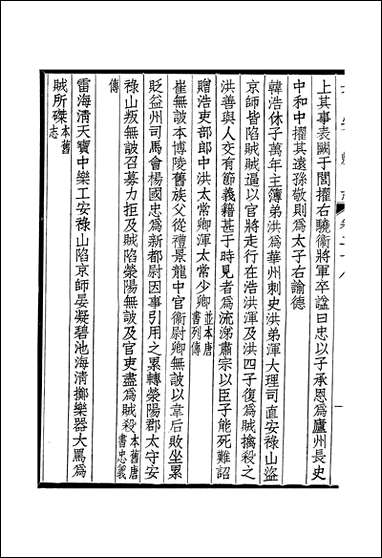 上其事表闕于閭擢右驍衞將軍卒諡曰忠以子承恩爲廬州長史
中和中擢其遠孫敬則爲太子右諭德
韓浩休子萬年主簿弟洪爲華州刺史洪弟渾大理司直安祿山盜
京師皆陷賊賊逼以官將走行在浩洪渾及洪四子復爲賊擒殺之
洪善與人交有節義藉甚于時見者爲流涕肅宗以臣子能死難詔
贈浩吏部郎中洪太常卿渾太常少卿並本唐書列傳
崔無詖本博陵舊族父從禮景龍中官衞尉卿無詖以韋后敗坐累
貶益州司馬會楊國忠爲新都尉因事引用之累轉滎陽郡太守安
祿山叛無詖召募力拒及賊陷滎陽無詖及官吏盡爲賊殺本舊唐書忠義
傳
雷海淸天寶中樂工安祿山陷京師晏凝碧池海淸擲樂器大罵爲
賊所磔本舊志